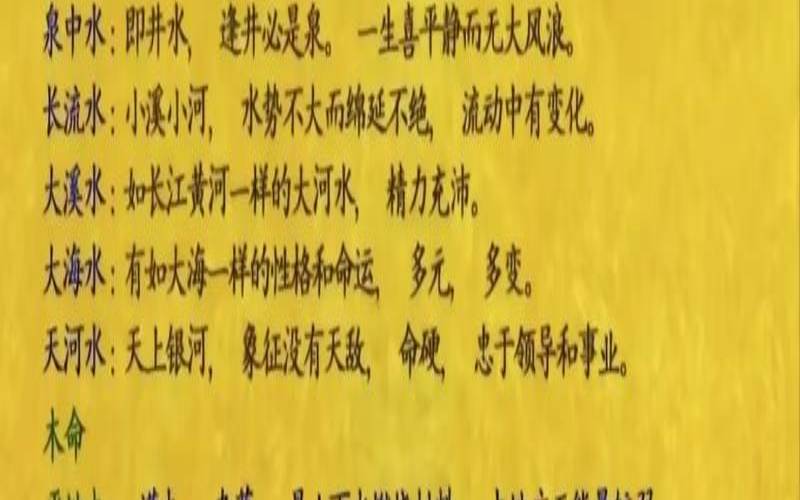 泉中水：即井水，逢井必是泉。一生喜平静而无大风浪。
长流水：小溪小河，水势不大而绵延不绝，流动中有变化。
大溪水：如长江黄河一样的大河水，精力充沛。
大海水：有如大海一样的性格和命运，多元，多变。
天河水：天上银河，象征没有天敌，命硬，忠于领导和事业。
木命